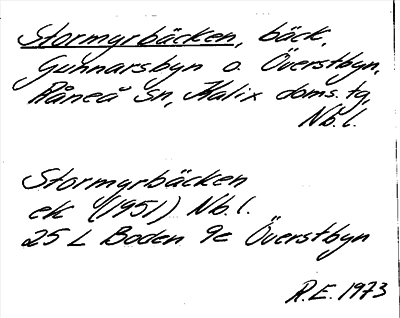 Stormyrbäcken, bäck,
Gunnarsbyn o. Överstbyn,
Råneå sn, Kalix doms. tg,
Nb. l.
Stormyrbäcken
ek (1951) Nb. l.
25 L Boden 9e Överstbyn
R.E. 1973